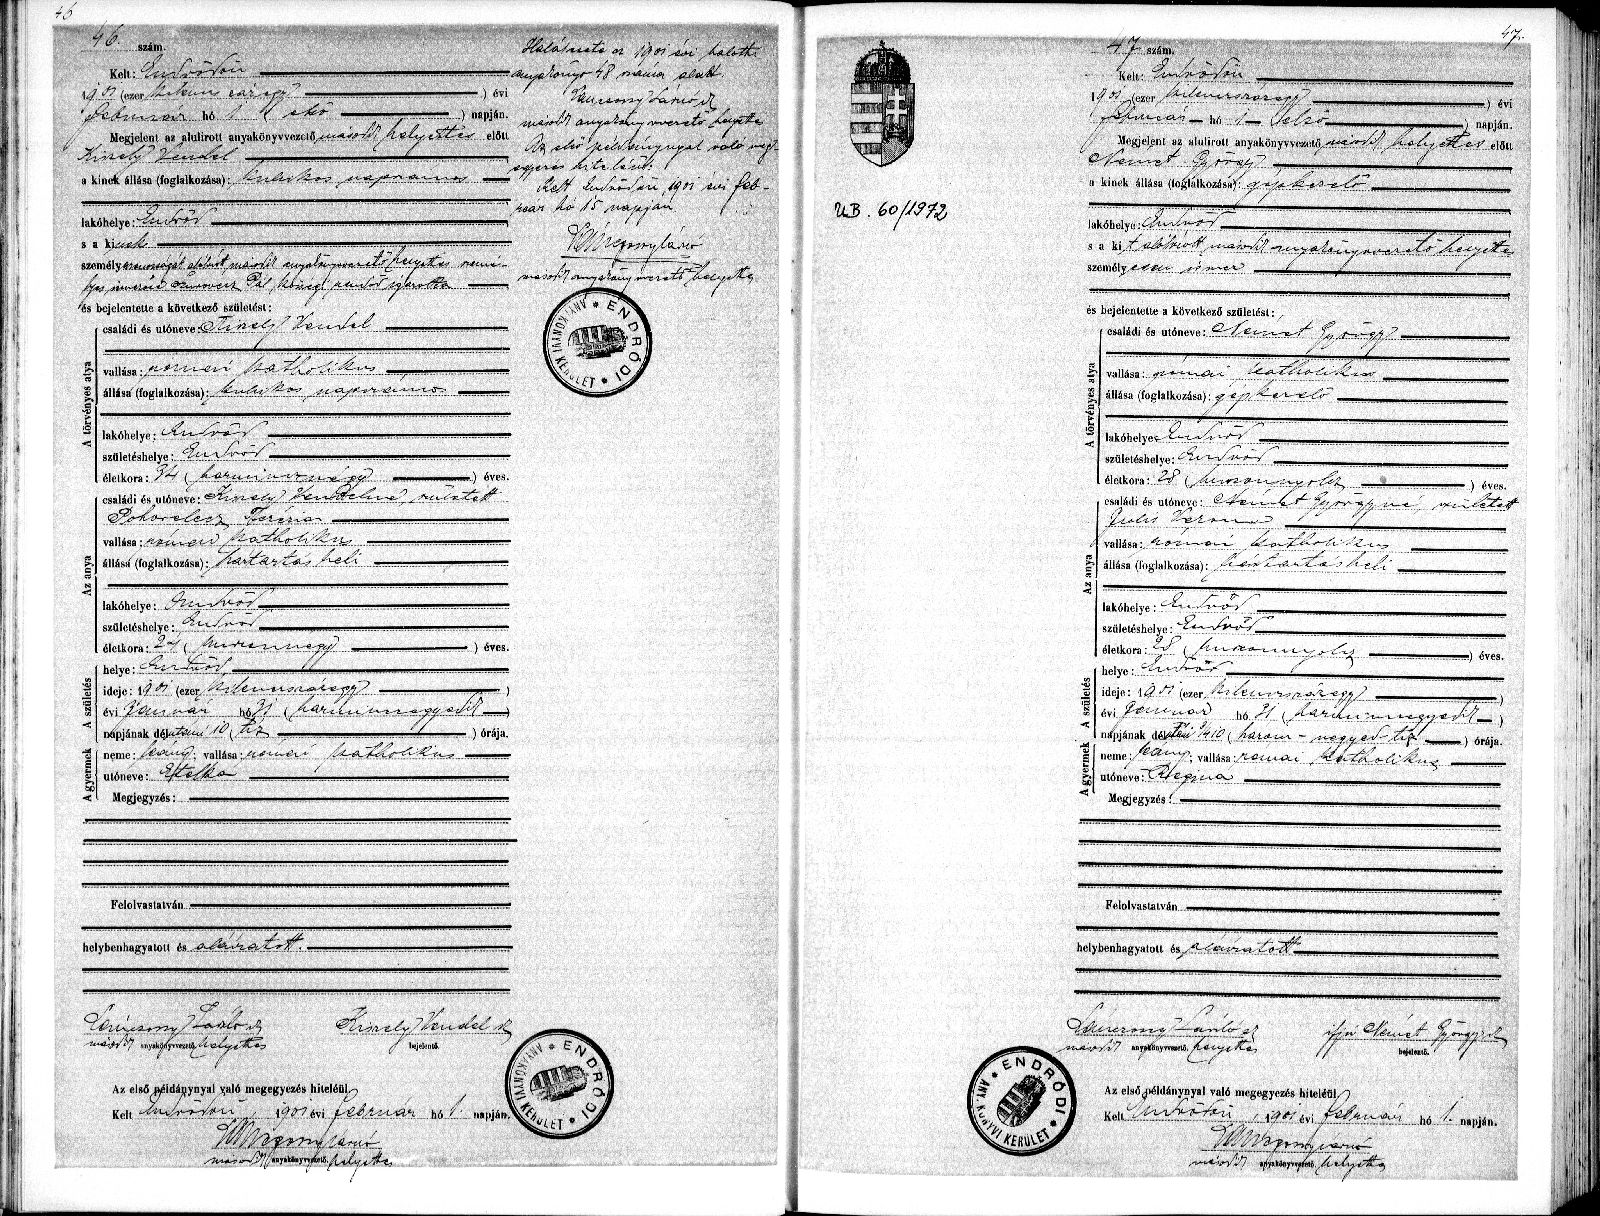 46
46. szám.
Kelt: Endrődön
1901 (ezer kilencszázegy) évi
február hó 1 (első) napján.
Megjelent az alulirott anyakönyvvezető másodk helyettes előtt
Király Vendel
a kinek állása (foglalkozása): kubikos napszámos
lakóhelye: Endrőd
s a kinek
személyazonosságát alulirott másodk anyakönyvvezető helyettes
és bejelentette a következő születést:
A törvényes atya
családi és utóneve: Király Vendel
vallása: római katholikus
állása (foglalkozása): kubikos napszámos
lakóhelye: Endrőd
születéshelye: Endrőd
életkora: 34 (harmincnégy) éves.
Az anya
családi és utóneve: Király Vendelné, született
Teréz
vallása: római katholikus
állása (foglalkozása): háztartásbeli
lakóhelye: Endrőd
születéshelye: Endrőd
életkora: 24 (huszonnégy) éves.
A születés
helye: Endrőd,
ideje: 1901 (ezer kilencszázegy)
évi január hó 31 (harmincegyedik)
napjának délutáni 10 (tíz) órája.
A gyermek
neme: leány; vallása: római katholikus
utóneve: Etelka
Megjegyzés:
Felolvastatván
helybenhagyatott és aláíratott.
Lánczony László sk Király Vendel sk
másodk anyakönyvvezető. helyettes bejelentő.
Az első példánynyal való megegyezés hiteléül
Kelt Endrődön, 1901 évi február hó 1. napján.
másodk anyakönyvvezető. helyettes
Halálesete az 1901 évi halotti
anyakönyv 48 száma alatt.
másodk anyakönyvvezető helyettes
Az első példánynyal való meg-
egyezés hiteléül.
Kelt Endrődön, 1901 évi feb-
ruár hó 15 napján
másodk anyakönyvvezető helyettes
ENDRŐDI ANYAKÖNYVI KERÜLET
ENDRŐDI ANYAKÖNYVI KERÜLET
47.
UB. 60/1972
47 szám.
Kelt: Endrődön
1901 (ezer kilencszázegy) évi
február hó 1 (első) napján.
Megjelent az alulirott anyakönyvvezető másodk helyettes előtt
Német György
a kinek állása (foglalkozása): gépkezelő
lakóhelye: Endrőd
s a kit alulirott másodk anyakönyvvezető helyettes
személyesen ismer
és bejelentette a következő születést:
A törvényes atya
családi és utóneve: Német György
vallása: római katholikus
állása (foglalkozása): gépkezelő
lakóhelye: Endrőd
születéshelye: Endrőd
életkora: 28 (huszonnyolcz) éves.
Az anya
családi és utóneve: Német Györgyné, született
vallása: római katholikus
állása (foglalkozása): háztartásbeli
lakóhelye: Endrőd
születéshelye: Endrőd
életkora: 28 (huszonnyolcz) éves.
A születés
helye: Endrőd
ideje: 1901 (ezer kilencszázegy)
évi január hó 31 (harmincegyedik)
napjának délutáni 3/4 10 (három-negyed tíz) órája.
A gyermek
neme: leány; vallása: római katholikus
utóneve: Regina
Megjegyzés:
Felolvastatván
helybenhagyatott és aláíratott
Lánczony László sk ifju Német György sk
másodk anyakönyvvezető. helyettes bejelentő.
Az első példánynyal való megegyezés hiteléül
Kelt Endrődön, 1901 évi február hó 1. napján.
másodk anyakönyvvezető. helyettes
ENDRŐDI ANYAKÖNYVI KERÜLET